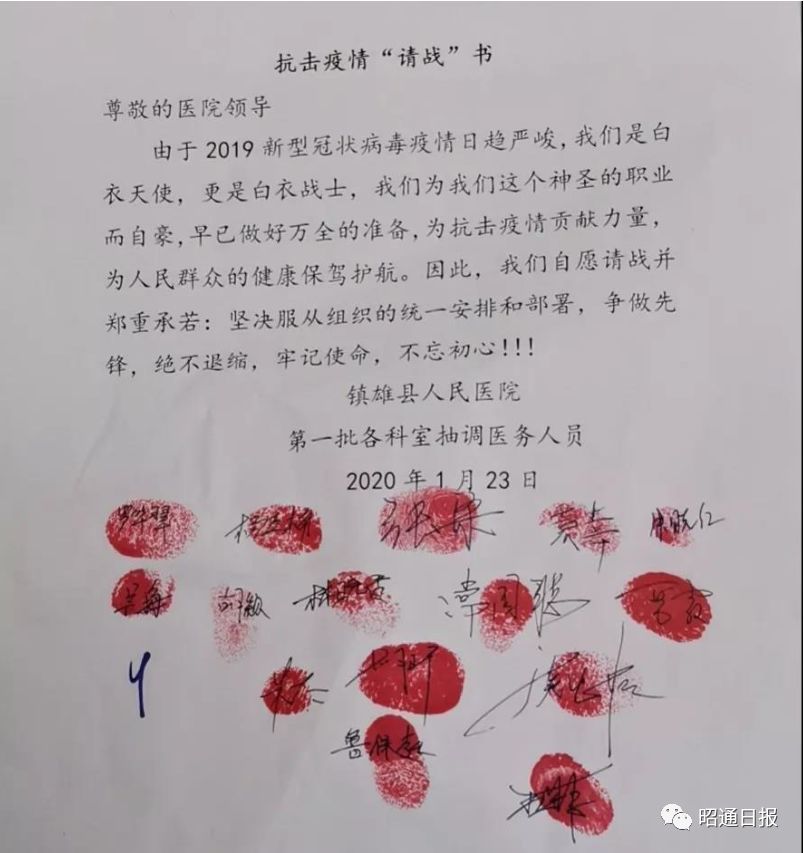 抗击疫情“请战”书
尊敬的医院领导
由于2019新型冠状病毒疫情日趋严峻,我们是白
衣天使，更是白衣战士，我们为我们这个神圣的职业
而自豪,早已做好万全的准备,为抗击疫情贡献力量，
为人民群众的健康保驾护航。因此，我们自愿请战并
郑重承若：坚决服从组织的统一安排和部署，争做先
锋，绝不退缩，牢记使命，不忘初心!!!
镇雄县人民医院
第一批各科室抽调医务人员
2020年1月23日
胡敏
昭通日报